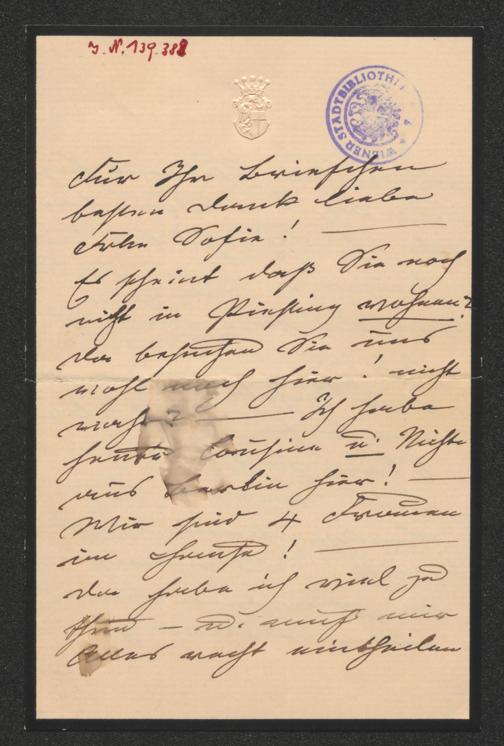 I. N. 139.388
WIENER STADTBIBLIOTHEK
Für Ihr Briefchen
besten Dank liebe
Frln Sofie! —
Es scheint daß Sie noch
nicht in Piesting wohnen?
da besuchen Sie uns
wohl noch hier! nicht
wahr? — Ich habe
heute Cousine u. Nichte
aus Berlin hier! —
Wir sind 4 Frauen
im Hause! —
da habe ich viel zu
thun — u. muß mir
Alles recht eintheilen